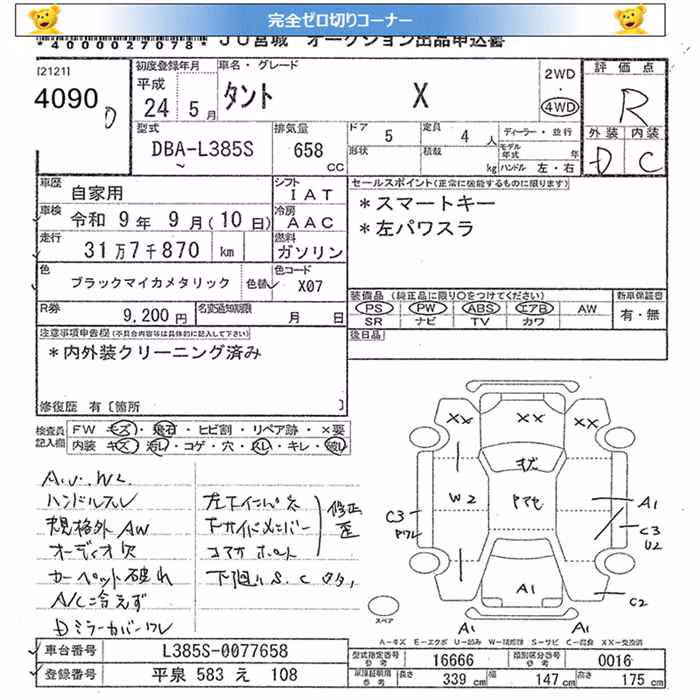 完全ゼロ切りコーナー
*4000027078* JU宮城 オークション出品申込書
[2121]
4090 D
初度登録年月 平成 24年 5月
車名・グレード タント X
2WD 4WD
評価点 R
外装 D 内装 C
型式 DBA-L385S
排気量 658 CC
ドア 5 定員 4人
形状 積載 kg
ディーラー・並行
モデル年式 年
ハンドル 左・右
車歴 自家用
シフト IAT
車検 令和 9年 9月(10日)
冷房 AAC
走行 31万7千870 km
燃料 ガソリン
色 ブラックマイカメタリック 色替
色コード X07
R券 9,200円
名変期限 月 日
セールスポイント(正常に機能するものに限ります)
*スマートキー
*左パワスラ
装備品(純正品に限り○をつけてください)
PS PW ABS エアB AW
SR ナビ TV カワ
新車保証書 有・無
後日品
注意事項申告欄(不具合内容等は具体的に記入して下さい)
*内外装クリーニング済み
修復歴 有〔箇所 〕
検査員記入欄
FW キズ・飛石・ヒビ割・リペア跡・×要
内装 キズ・汚れ・コゲ・穴・スレ・キレ・破れ
ハンドルスレ
規格外AW
オーディオ欠
カーペット破れ
A/C冷えず
Dミラーカバーワレ
左下インパネ
下サイドメンバー
コアサポート
修正 歪
下廻りS.C
XX XX XX
W2
C3 ワレ
A1
C3
U2
A1
C2
A1 A1
スペア
A-キズ E-エクボ U-凹み W-補修跡 S-サビ C-腐食 XX-交換済
車台番号 L385S-0077658
登録番号 平泉 583 え 108
型式指定番号 参考 16666
類別区分番号 参考 0016
車検証期限 参考 長さ 339cm 幅 147cm 高さ 175cm